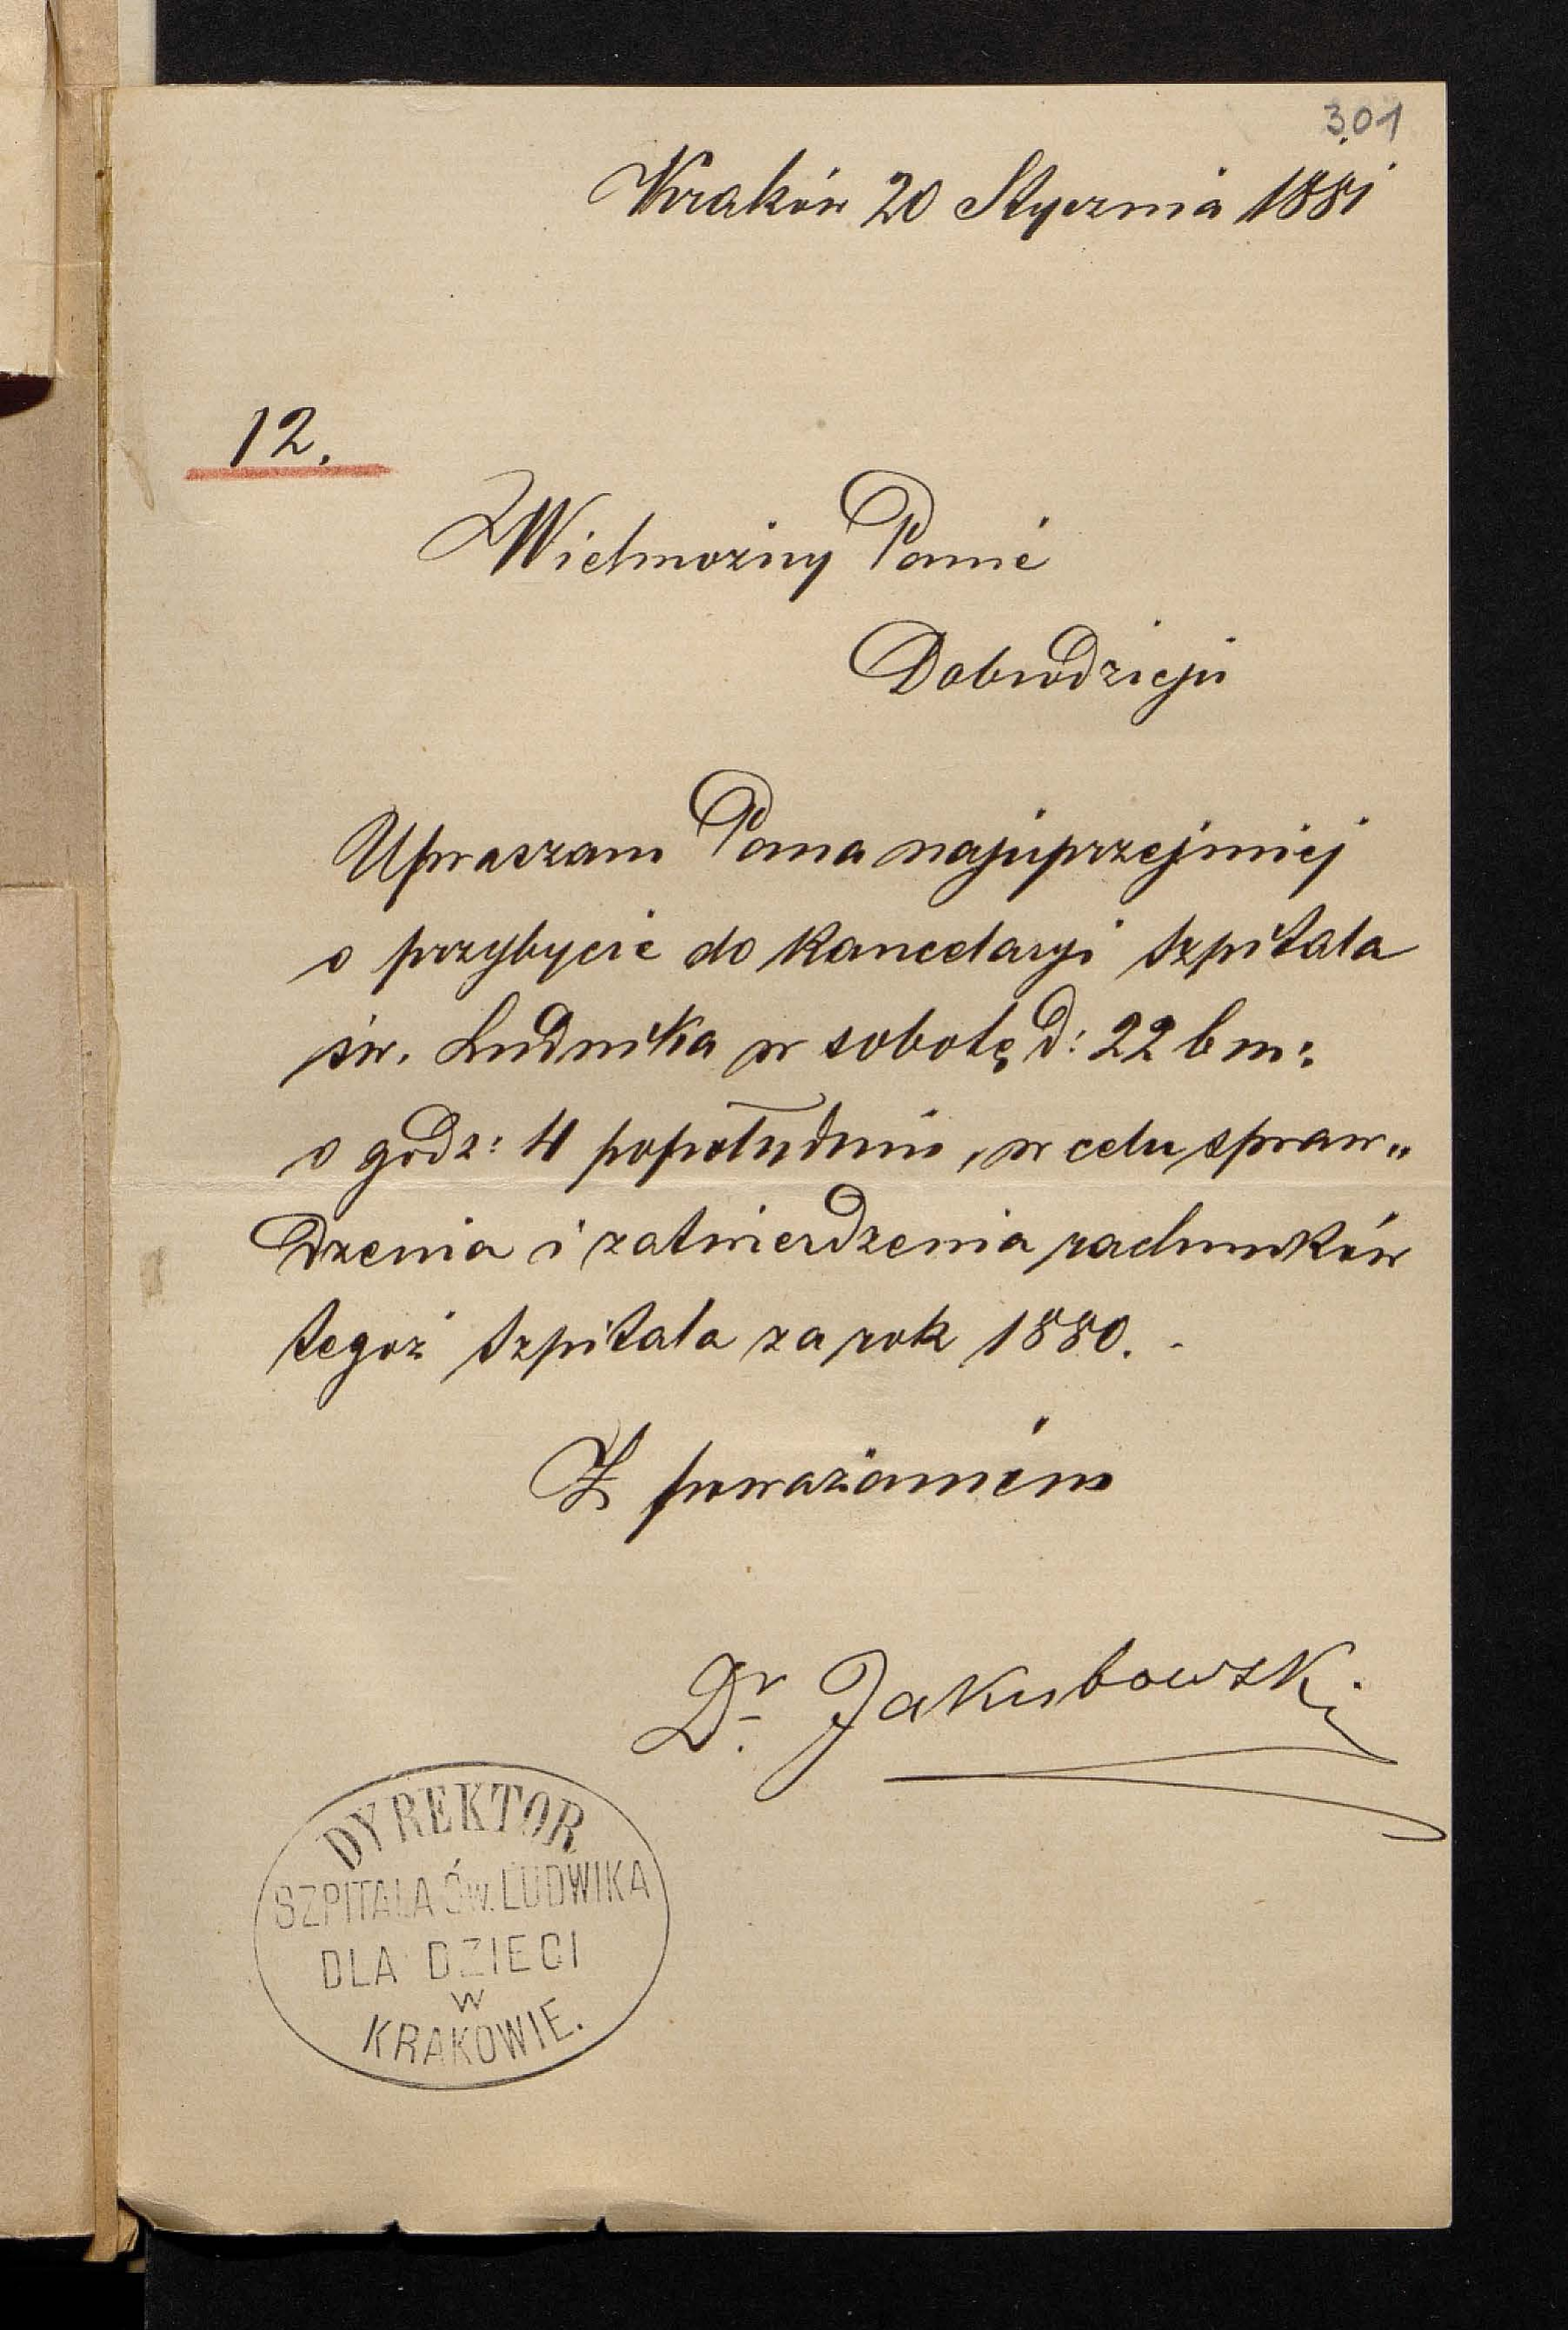 301
Kraków 20 Stycznia 1881
12.
Wielmożny Panie
Dobrodzieju
Upraszam Pana najuprzejmiej
o przybycie do kancelaryi szpitala
św. Ludwika w sobotę d: 22 b m:
o godz: 4 popołudniu, w celu spraw„
dzenia i zatwierdzenia rachunków
tegoż szpitala za rok 1880. -
Z poważaniem
Dr. Jakubowski
DYREKTOR
SZPITALA ŚW. LUDWIKA
DLA DZIECI
W
KRAKOWIE.